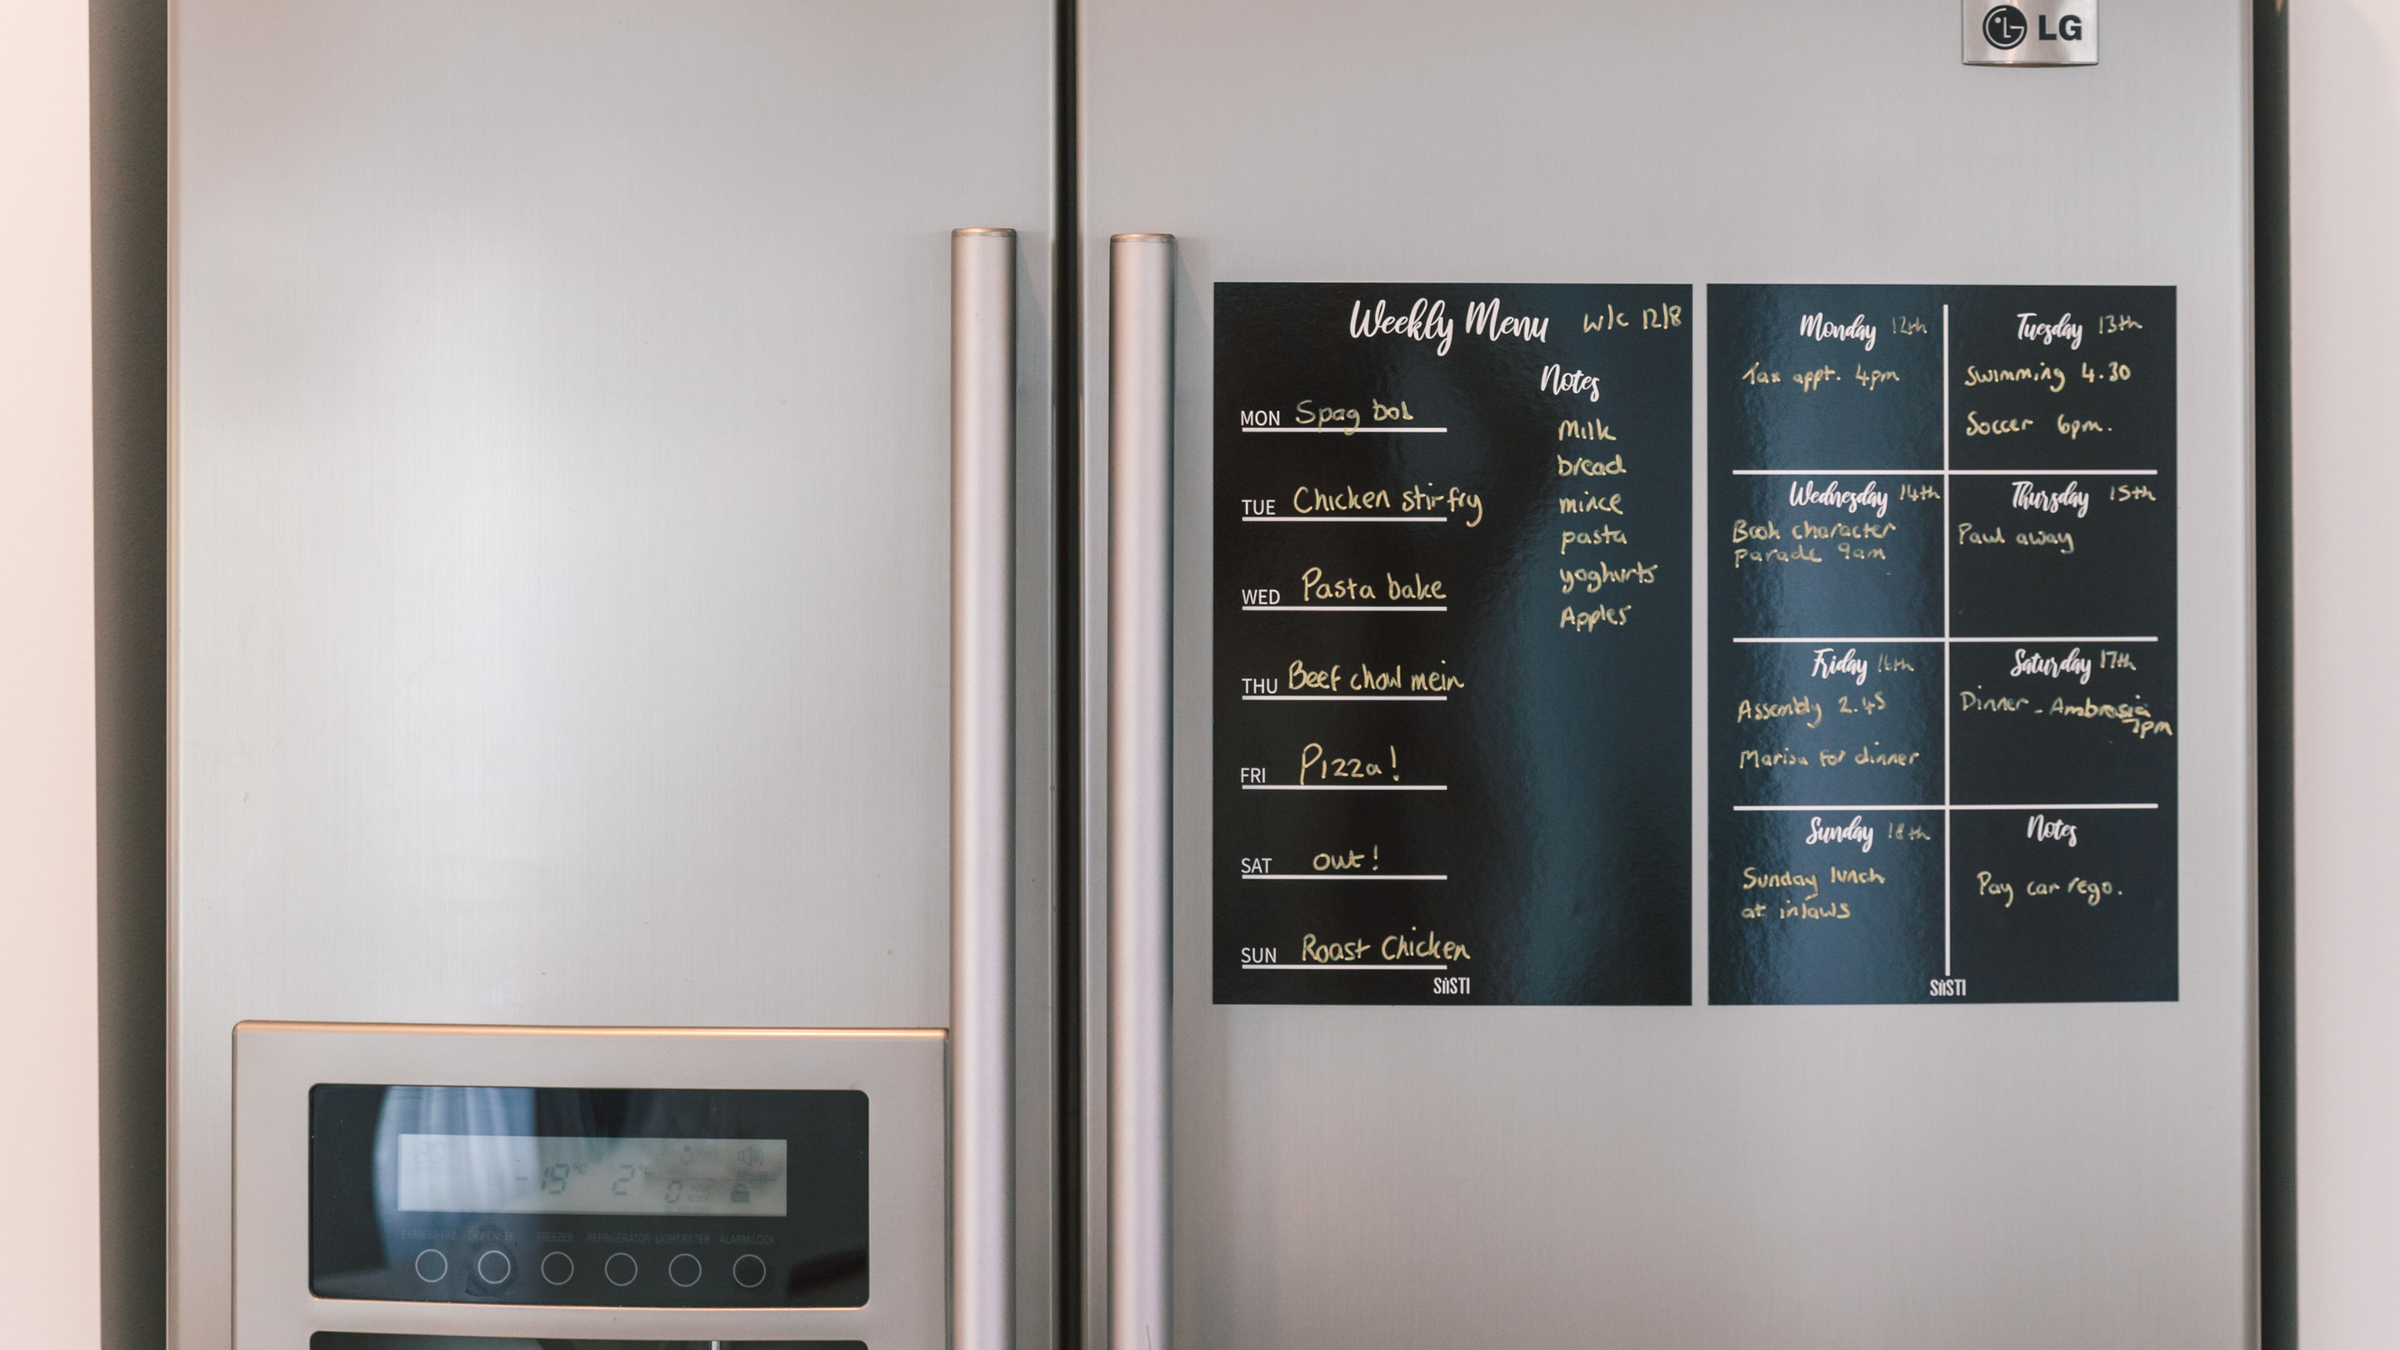 LG
Weekly Menu w/c 12/8
Notes
MON Spag bol
TUE Chicken stir-fry
WED Pasta bake
THU Beef chow mein
FRI Pizza!
SAT out!
SUN Roast Chicken
Milk
bread
mince
pasta
yoghurts
Apples
SiiSTI
Monday 12th
Tax appt. 4pm
Tuesday 13th
Swimming 4.30
Soccer 6pm.
Wednesday 14th
Book character
parade 9am
Thursday 15th
Paul away
Friday 16th
Assembly 2.45
Marisa for dinner
Saturday 17th
Dinner - Ambrosia
7pm
Sunday 18th
Sunday lunch
at inlaws
Notes
Pay car rego.
SiiSTI
-19°C 2°C
0
FREEZER REFRIGERATOR LIGHT/FILTER ALARM/LOCK